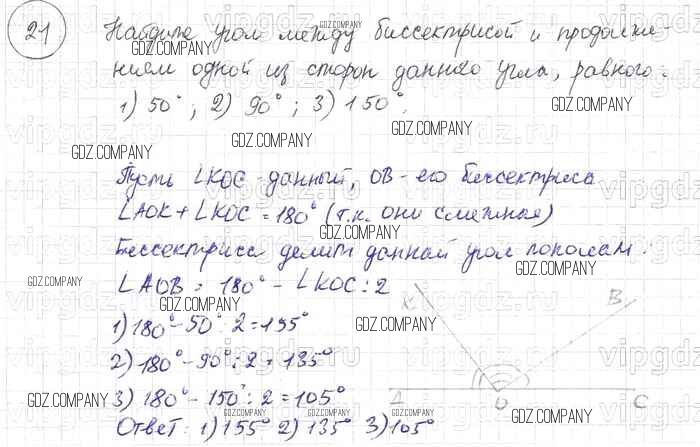 21 Найдите угол между биссектрисой и продолже-
нием одной из сторон данного угла, равного:
1) 50°; 2) 90°; 3) 150°.
Пусть ∠KOC - данный, OB - его биссектриса
∠AOK + ∠KOC = 180° (т.к. они смежные)
Биссектриса делит данный угол пополам:
∠AOB = 180° - ∠KOC : 2
1) 180° - 50° : 2 = 155°
2) 180° - 90° : 2 = 135°
3) 180° - 150° : 2 = 105°
Ответ: 1) 155° 2) 135° 3) 105°
K B
A O C
GDZ.COMPANY
vipgdz.ru